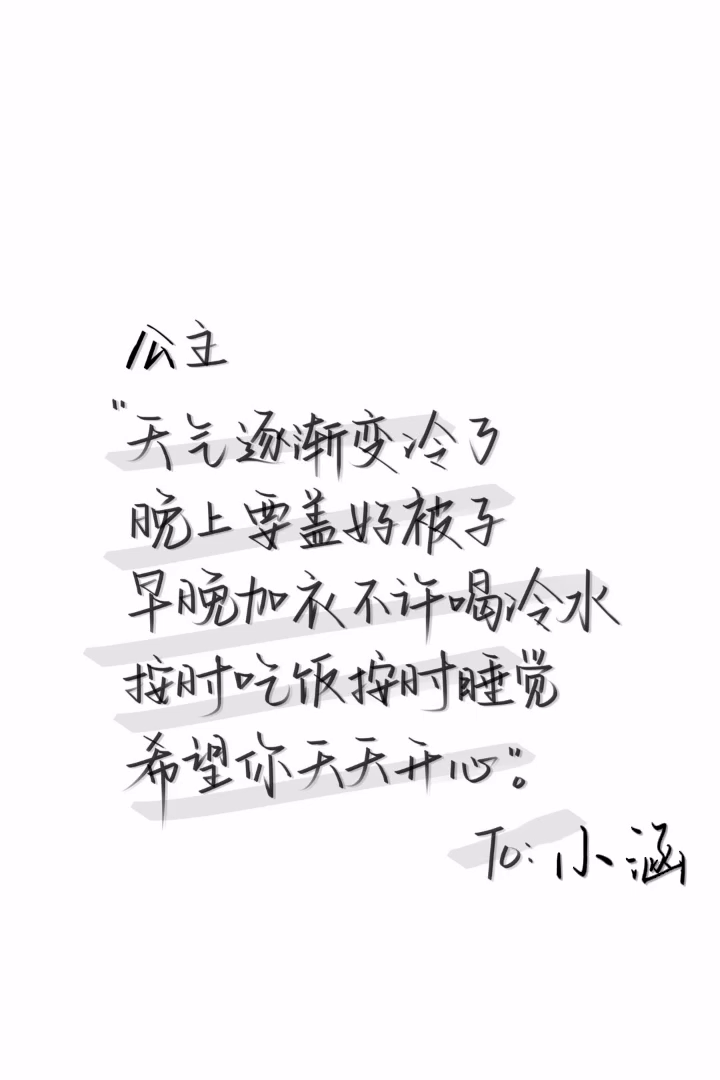 公主
"天气逐渐变冷了
晚上要盖好被子
早晚加衣不许喝冷水
按时吃饭按时睡觉
希望你天天开心"。
To:小涵